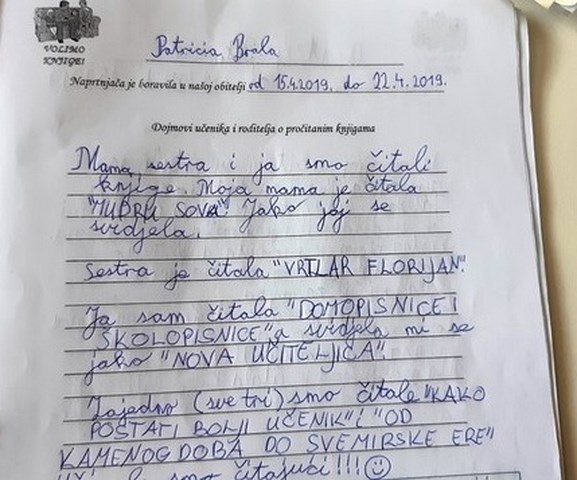 VOLIMO
KNJIGE!
Patricia Brala
Naprtnjača je boravila u našoj obitelji od 15.4.2019. do 22.4.2019.
Dojmovi učenika i roditelja o pročitanim knjigama
Mama, sestra i ja smo čitali
knjige. Moja mama je čitala
"MUDRU SOVA". Jako joj se
svidjela.
Sestra je čitala "VRTLAR FLORIJAN".
Ja sam čitala "DOMOPISNICE I
ŠKOLOPISNICE" a svidjela mi se
jako "NOVA UČITELJICA".
Zajedno (sve tri) smo čitale "KAKO
POSTATI BOLJI UČENIK" i "OD
KAMENOG DOBA DO SVEMIRSKE ERE"
smo čitajući!!! ☺